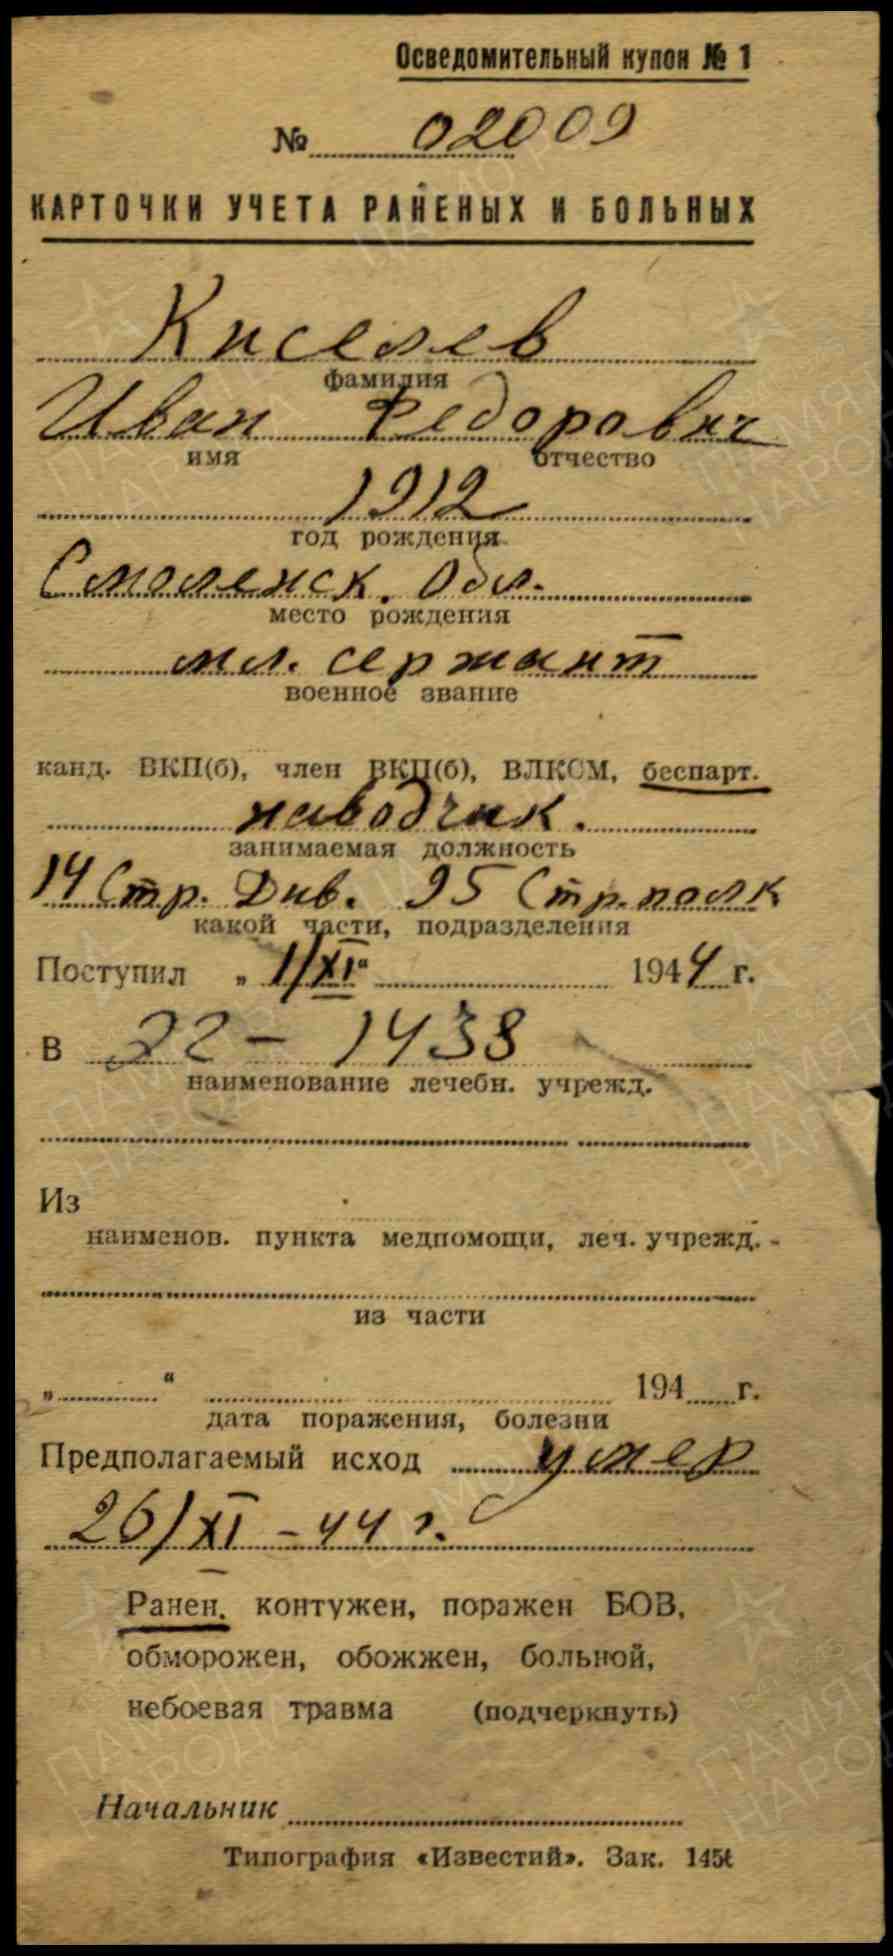 Осведомительный купон № 1
№ 02009
КАРТОЧКИ УЧЕТА РАНЕНЫХ И БОЛЬНЫХ
Киселев
фамилия
Иван Федорович
имя отчество
1912
год рождения
Смоленск. обл.
место рождения
мл. сержант
военное звание
канд. ВКП(б), член ВКП(б), ВЛКСМ, беспарт.
наводчик.
занимаемая должность
14 Стр. Див. 95 Стр. полк
какой части, подразделения
Поступил „ 1/XI “ 1944 г.
В ЭГ - 1438
наименование лечебн. учрежд.
Из
наименов. пункта медпомощи, леч. учрежд.
из части
„ “ 194 г.
дата поражения, болезни
Предполагаемый исход умер
26/XI - 44 г.
Ранен, контужен, поражен БОВ,
обморожен, обожжен, больной,
небоевая травма (подчеркнуть)
Начальник
Типография «Известий». Зак. 145
ПАМЯТЬ НАРОДА